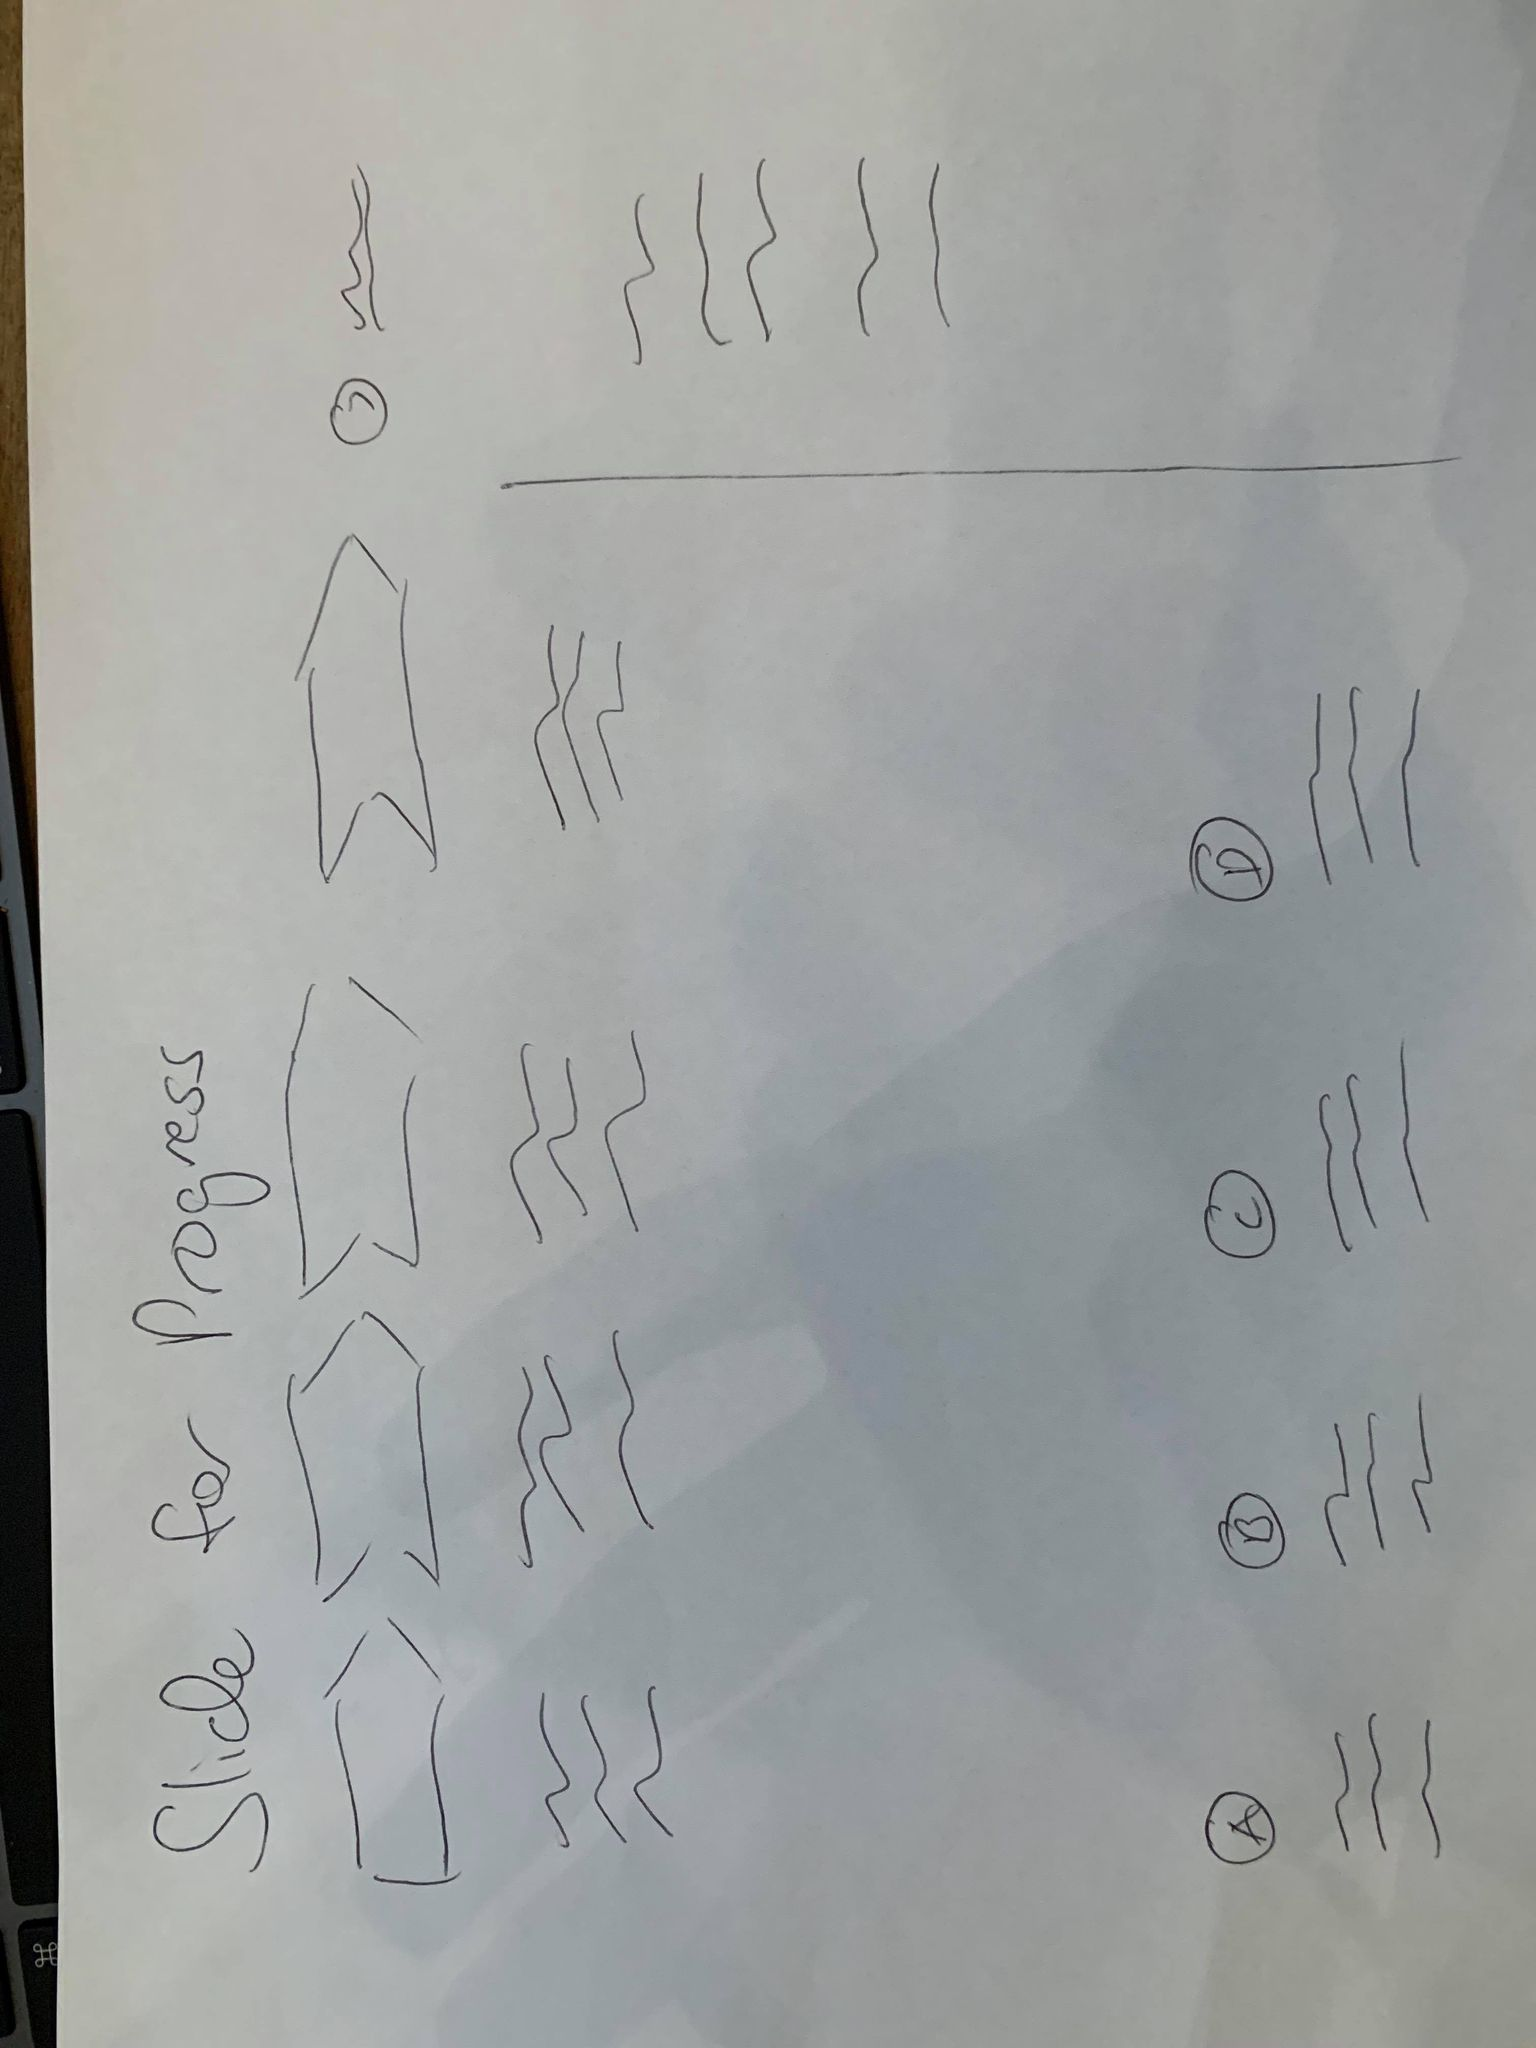 Slide for Progress
A B C D
⌘